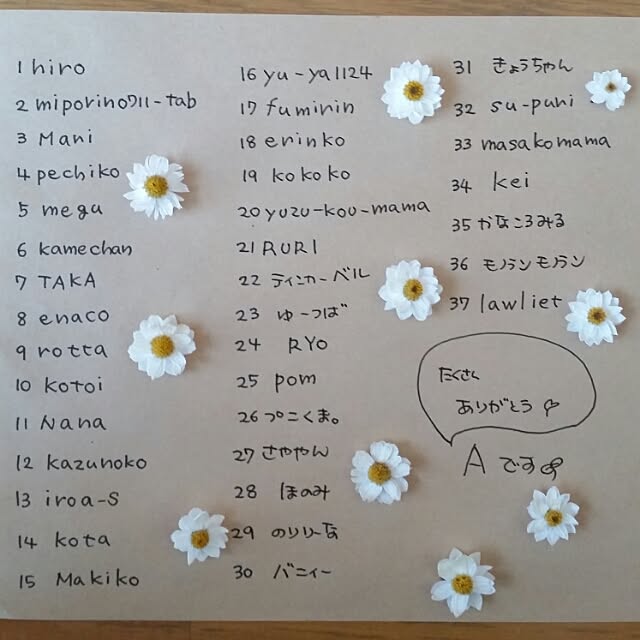 1 hiro
2 miporino711-tab
3 Mani
4 pechiko
5 megu
6 kamechan
7 TAKA
8 enaco
9 rotta
10 kotoi
11 Nana
12 kazunoko
13 iroa-s
14 kota
15 Makiko
16 yu-ya1124
17 fuminin
18 erinko
19 kokoko
20 yuzu-kou-mama
21 RURI
22 ティンカーベル
23 ゆーつば
24 RYO
25 pom
26 つこくま。
27 さややん
28 ほのみ
29 のりりーな
30 バニィー
31 きょうちゃん
32 su-puni
33 masakomama
34 kei
35 かなころみる
36 モノランモノラン
37 lawliet
たくさん
ありがとう
Aです